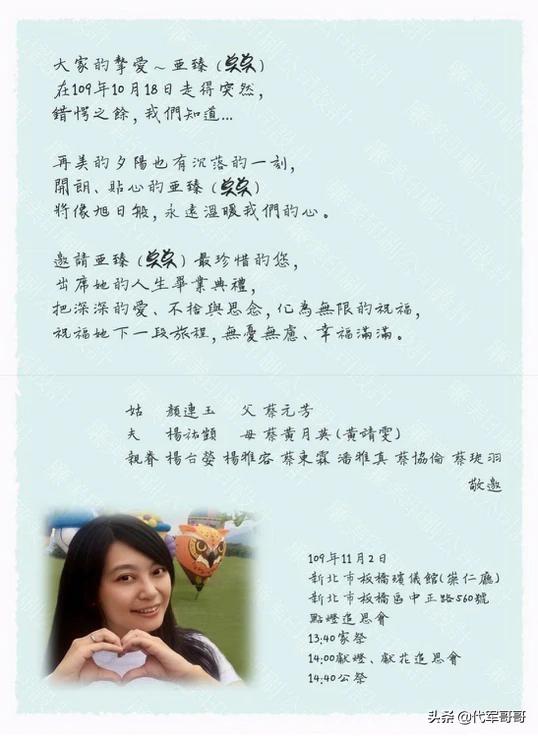 大家的摯愛~亞臻(奐奐)
在109年10月18日走得突然,
錯愕之餘,我們知道...
再美的夕陽也有沉落的一刻,
開朗、貼心的亞臻(奐奐)
將像旭日般,永遠溫暖我們的心。
邀請亞臻(奐奐)最珍惜的您,
出席她的人生畢業典禮,
把深深的愛、不捨與思念,化為無限的祝福,
祝福她下一段旅程,無憂無慮、幸福滿滿。
姑 顏連玉 父 蔡元芳
夫 楊祐顗 母 蔡黃月英(黃靖雯)
親眷 楊台螢 楊雅容 蔡東霖 潘雅真 蔡協倫 蔡琬羽
敬邀
109年11月2日
新北市板橋殯儀館(崇仁廳)
新北市板橋區中正路560號
點燈追思會
13:40家祭
14:00獻燈、獻花追思會
14:40公祭
头条 @代军哥哥